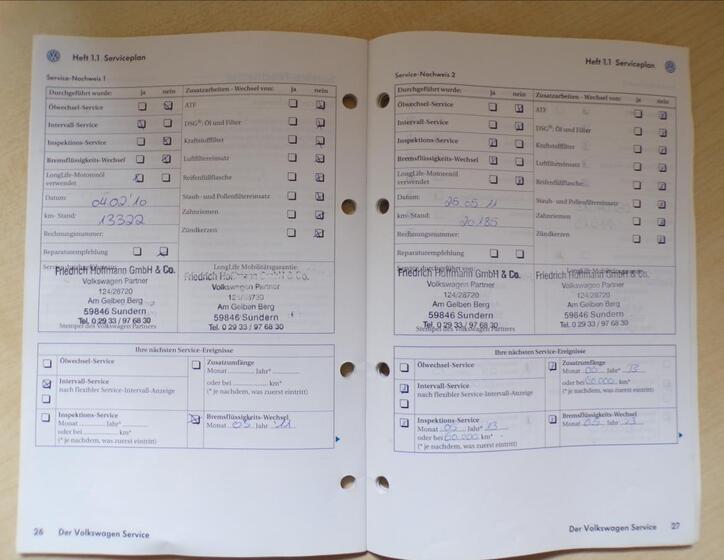 Heft 1.1 Serviceplan
Service-Nachweis 1
Durchgeführt wurde: ja nein
Ölwechsel-Service
Intervall-Service
Inspektions-Service
Bremsflüssigkeits-Wechsel
LongLife-Motorenöl
verwendet
Datum: 04.02.'10
km-Stand: 13322
Rechnungsnummer:
Reparaturempfehlung
Zusatzarbeiten - Wechsel von: ja nein
ATF
DSG®: Öl und Filter
Kraftstofffilter
Luftfiltereinsatz
Reifenfüllflasche
Staub- und Pollenfiltereinsatz
Zahnriemen
Zündkerzen
Friedrich Hoffmann GmbH & Co.
Volkswagen Partner
124/28720
Am Gelben Berg
59846 Sundern
Tel. 0 29 33 / 97 68 30
Stempel des Volkswagen Partners
LongLife Mobilitätsgarantie:
Friedrich Hoffmann GmbH & Co.
Volkswagen Partner
Am Gelben Berg
59846 Sundern
Tel. 0 29 33 / 97 68 30
Ihre nächsten Service-Ereignisse
Ölwechsel-Service
Intervall-Service
nach flexibler Service-Intervall-Anzeige
Inspektions-Service
Monat Jahr*
oder bei km*
(* je nachdem, was zuerst eintritt)
Zusatzumfänge
Monat Jahr*
oder bei km*
(* je nachdem, was zuerst eintritt)
Bremsflüssigkeits-Wechsel
Monat 05 Jahr 11
26 Der Volkswagen Service
Heft 1.1 Serviceplan
Service-Nachweis 2
Durchgeführt wurde: ja nein
Ölwechsel-Service
Intervall-Service
Inspektions-Service
Bremsflüssigkeits-Wechsel
LongLife-Motorenöl
verwendet
Datum: 25.05.11
km-Stand: 20185
Rechnungsnummer:
Reparaturempfehlung
Zusatzarbeiten - Wechsel von: ja nein
ATF
DSG®: Öl und Filter
Kraftstofffilter
Luftfiltereinsatz
Reifenfüllflasche
Staub- und Pollenfiltereinsatz
Zahnriemen
Zündkerzen
Friedrich Hoffmann GmbH & Co.
Volkswagen Partner
124/28720
Am Gelben Berg
59846 Sundern
Tel. 0 29 33 / 97 68 30
Stempel des Volkswagen Partners
Friedrich Hoffmann GmbH & Co.
Volkswagen Partner
124/28720
Am Gelben Berg
59846 Sundern
Tel. 0 29 33 / 97 68 30
Ihre nächsten Service-Ereignisse
Ölwechsel-Service
Intervall-Service
nach flexibler Service-Intervall-Anzeige
Inspektions-Service
Monat 05 Jahr* 13
oder bei 60.000 km*
(* je nachdem, was zuerst eintritt)
Zusatzumfänge
Monat 05 Jahr* 13
oder bei 60.000 km*
(* je nachdem, was zuerst eintritt)
Bremsflüssigkeits-Wechsel
Monat 05 Jahr 13
Der Volkswagen Service 27